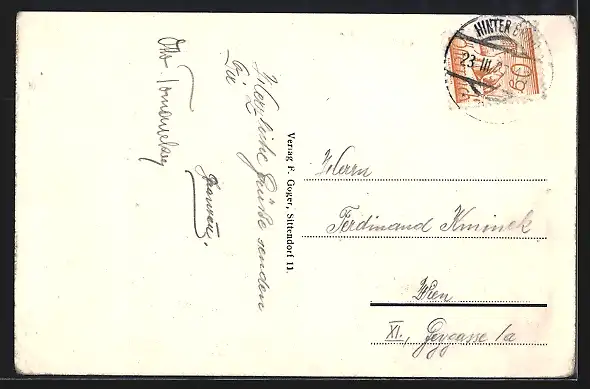 Herzliche Grüße senden
Sie
Otto
Verlag F. Goger, Sittendorf 11.
HINTER
23·III
60
Herrn
Ferdinand Kminek
Wien
XI., Geygasse 1a